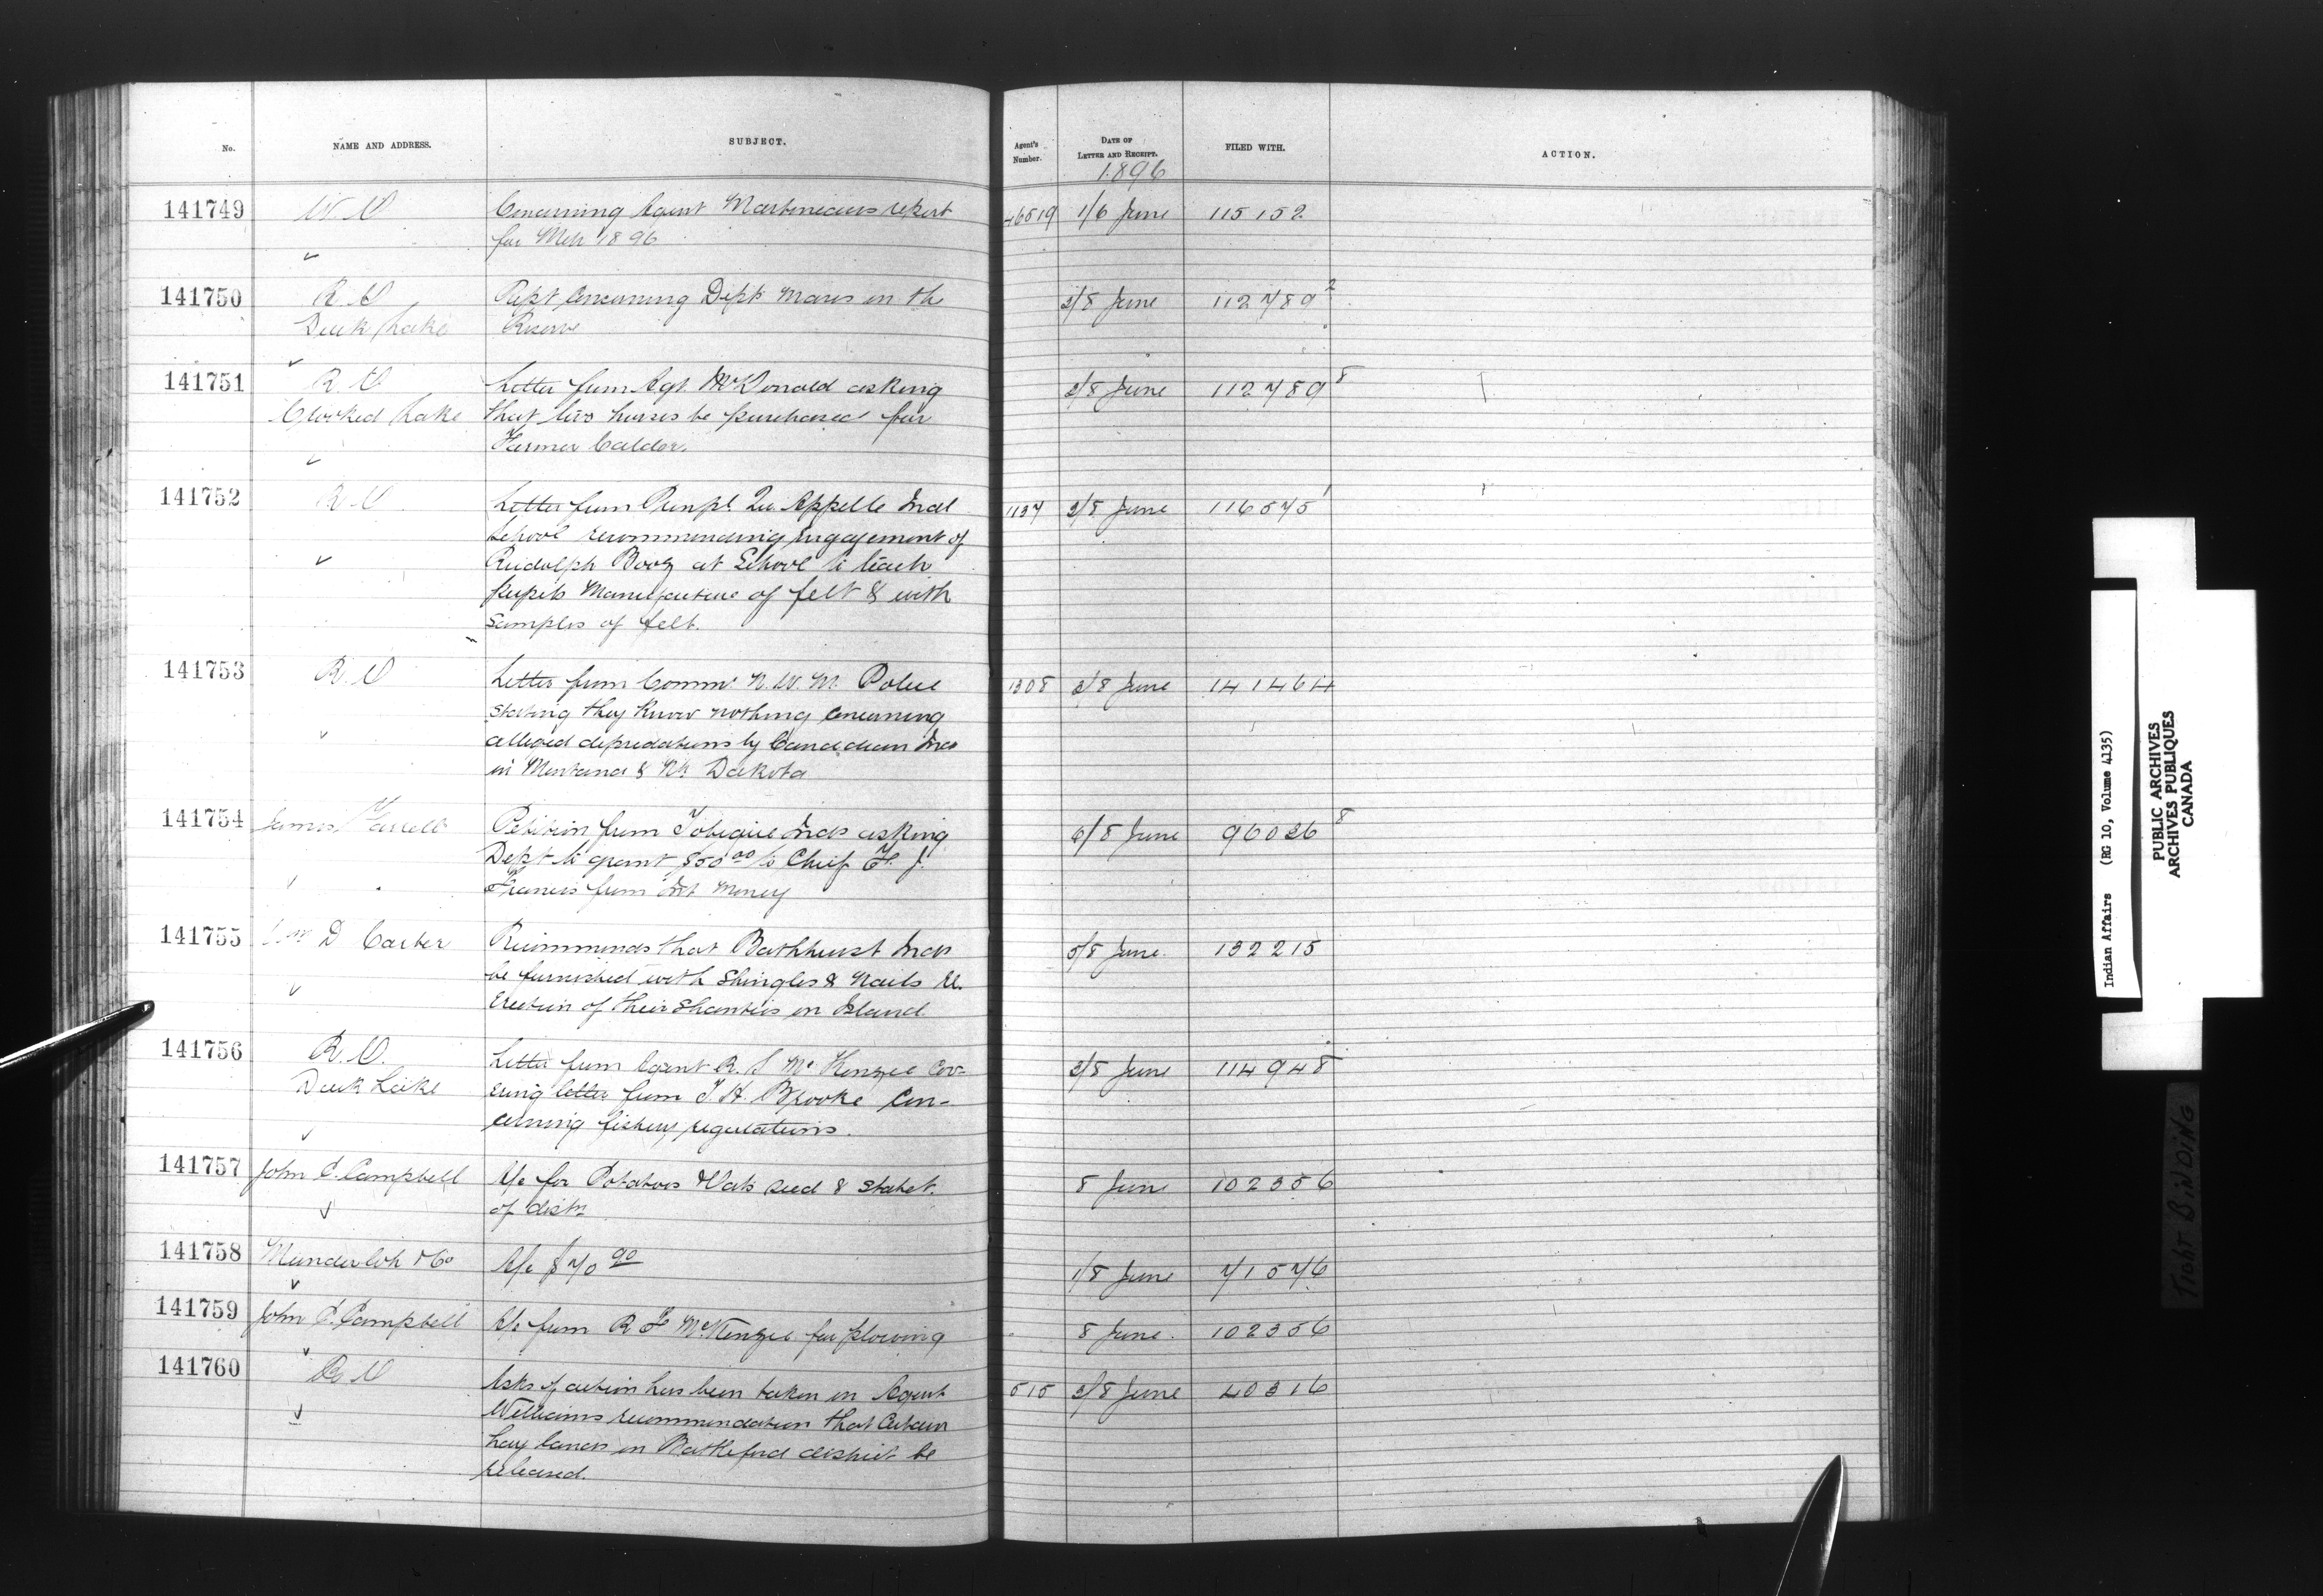 No.
NAME AND ADDRESS.
SUBJECT.
Agent's Number.
DATE OF LETTER AND RECEIPT.
FILED WITH.
ACTION.
1896
141749 W O Concerning Agent Martineaus report 46519 1/6 June 115152
for Mch 1896
141750 R. O Rept concerning Dept Mares on the 2/8 June 112789 2
Duck Lake Reserve
141751 R. O Letter from Agt. McDonald asking 2/8 June 112789 8
Crooked Lake that two horses be purchased for
Farmer Calder.
141752 R. O Letter from Prinpl. Qu Appelle Indl 1137 2/8 June 116575 1
School recommending engagement of
Rudolph Booz at School to teach
pupils Manufacture of felt & with
Samples of felt.
141753 R. O Letter from Commr N. W. M. Police 1308 3/8 June 141464
stating they know nothing concerning
alleged depredations by Canadian Inds
in Montana & Nh Dakota
141754 James Farrell Petition from Tobique Inds asking 6/8 June 96026 8
Dept to grant $50 00 to Chief F. J.
Francis from Int Money
141755 Wm D Carter Recommends that Bathhurst Inds 5/8 June. 132215
be furnished with Shingles & Nails re.
Erection of their shanties on Island.
141756 R. O. Letter from Agent R. S McKenzie Cov- 2/8 June 114948
Duck Lake ering letter from T. H. Brooke Con-
cerning fishery regulations.
141757 John P. Campbell A/c for Potatoes & Oats seed & statet. 8 June 102356
of distn
141758 Munderloh & Co A/c $70 90 1/8 June 71576
141759 John P. Campbell A/c from R F McKenzie for plowing 8 June. 102356
141760 R. O Asks if action has been taken on Agent 515 3/8 June 40316
Williams recommendation that Certain
hay lands in Battleford district be
released.
Indian Affairs (RG 10, Volume 4135)
PUBLIC ARCHIVES
ARCHIVES PUBLIQUES
CANADA
TIGHT BINDING